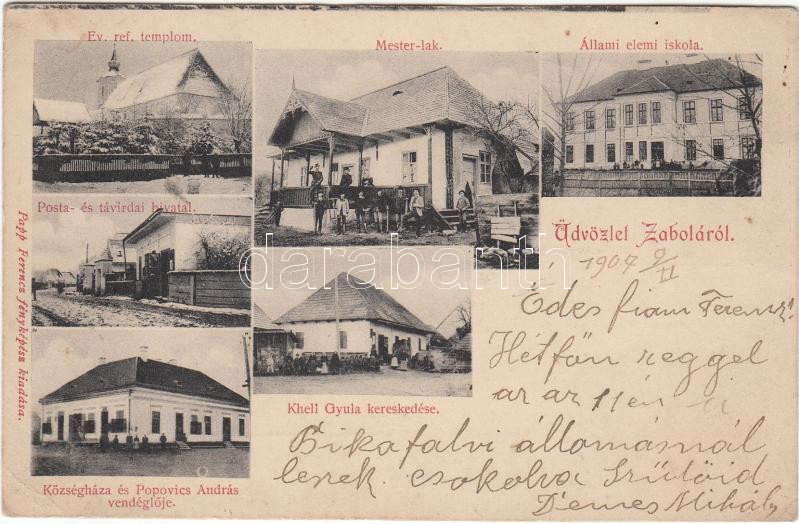 Ev. ref. templom.
Mester-lak.
Állami elemi iskola.
Posta- és távirdai hivatal.
Üdvözlet Zaboláról.
Papp Ferencz fényképész kiadása.
darabanth
Kheli Gyula kereskedése.
Községháza és Popovics András
vendéglője.
1907 9/II
Édes fiam Ferenz!
Hétfőn reggel
az az 11én a
Bikafalvi állomásnál
leszek. csokolva Szülőid
Demes Mihály